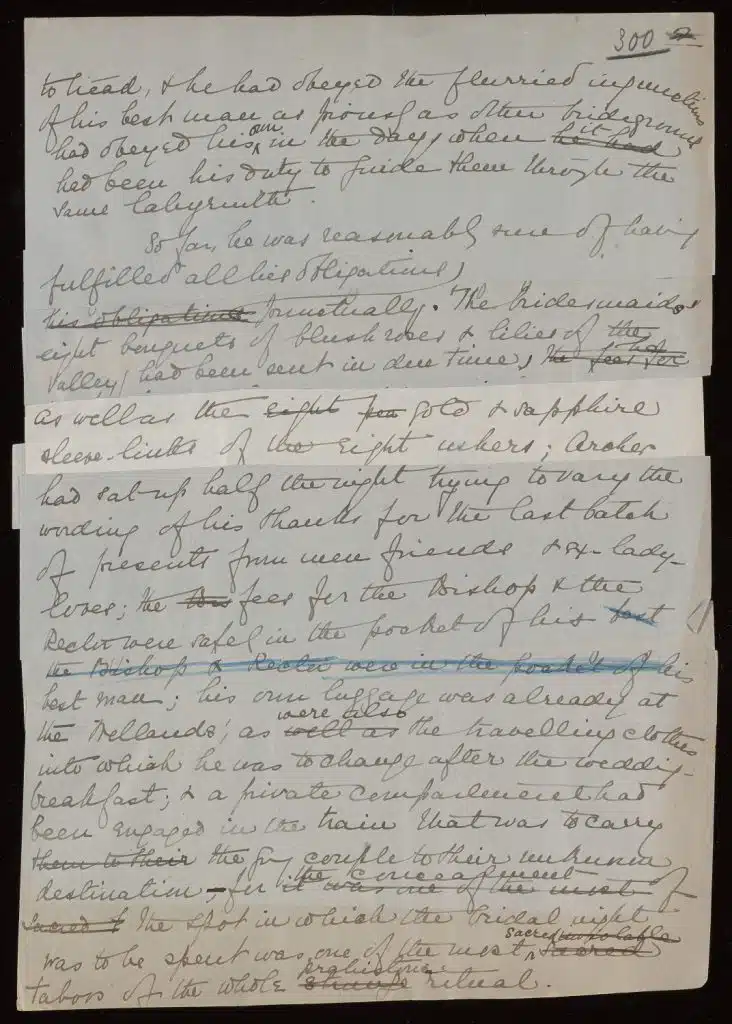 300
to head, & he had obeyed the flurried injunctions
of his best man as piously as other bridegrooms
had obeyed his own in the days when he had it
had been his duty to guide them through the
same labyrinth.
So far, he was reasonably sure of having
fulfilled all his obligations
his obligations punctually. The bridesmaids'
eight bouquets of blush roses & lilies of the
valley had been sent in due time, the fees for
as well as the eight gold & sapphire
sleeve-links of the eight ushers; Archer
had sat up half the night trying to vary the
wording of his thanks for the last batch
of presents from men friends & ex-lady-
loves; the Bis fees for the Bishop & the
Rector were safely in the pocket of his best
the Bishop & Rector were in the pocket of his
best man; his own luggage was already at
the Wellands', as well as were also the travelling clothes
into which he was to change after the wedding-
breakfast; & a private compartment had
been engaged in the train that was to carry
them to their the young couple to their unknown
destination, for it was one of the most the concealment of
sacred t the spot in which the bridal night
was to be spent was one of the most sacred inviolable sacred
taboos of the whole strange prehistoric ritual.